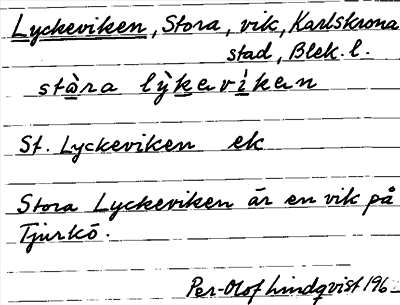 Lyckeviken, Stora, vik, Karlskrona
stad, Blek. l.
stȧ̀ra lỳkevi̇̀ken
St. Lyckeviken ek
Stora Lyckeviken är en vik på
Tjurkö.
Per-Olof Lindqvist 196